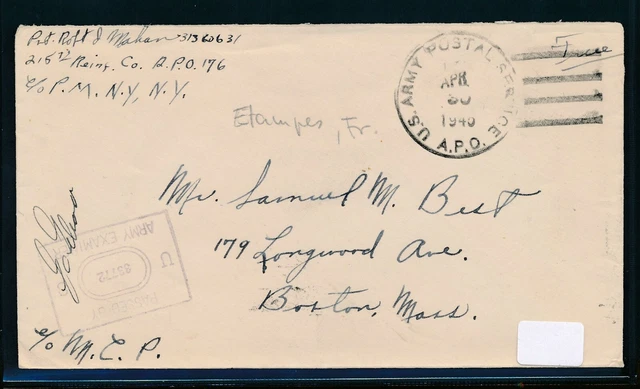 Pvt. Robt J Mahan 31360631
215th Reinf. Co. A.P.O. 176
c/o P.M. N.Y, N.Y.
U.S. ARMY POSTAL SERVICE
APR
30
A.P.O.
Free
Etampes, Fr.
Mr. Samuel M. Best
179 Longwood Ave.
Boston, Mass.
PASSED BY
U S
ARMY EXAMINER
c/o M.C.P.